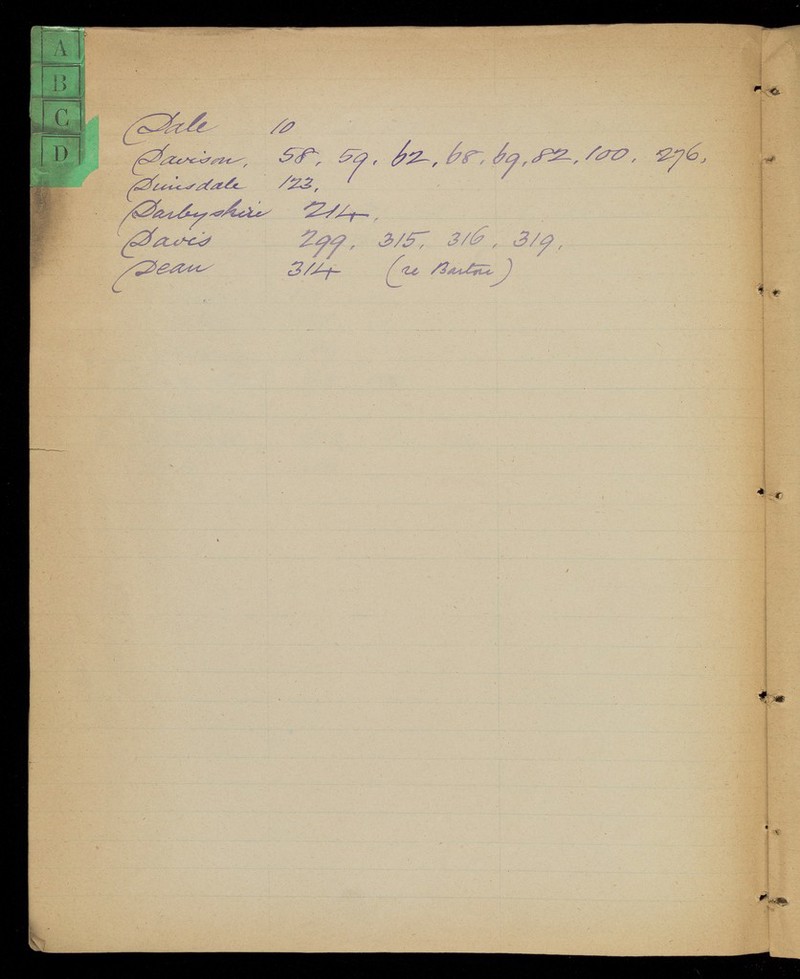 A
B
C
D
Dale 10
Davison, 58, 59, 62, 68, 69, 82, 100, 276,
Dinsdale 123,
Darbyshire 214,
Davis 299, 315, 316, 319,
Dean 314 (re Barton)